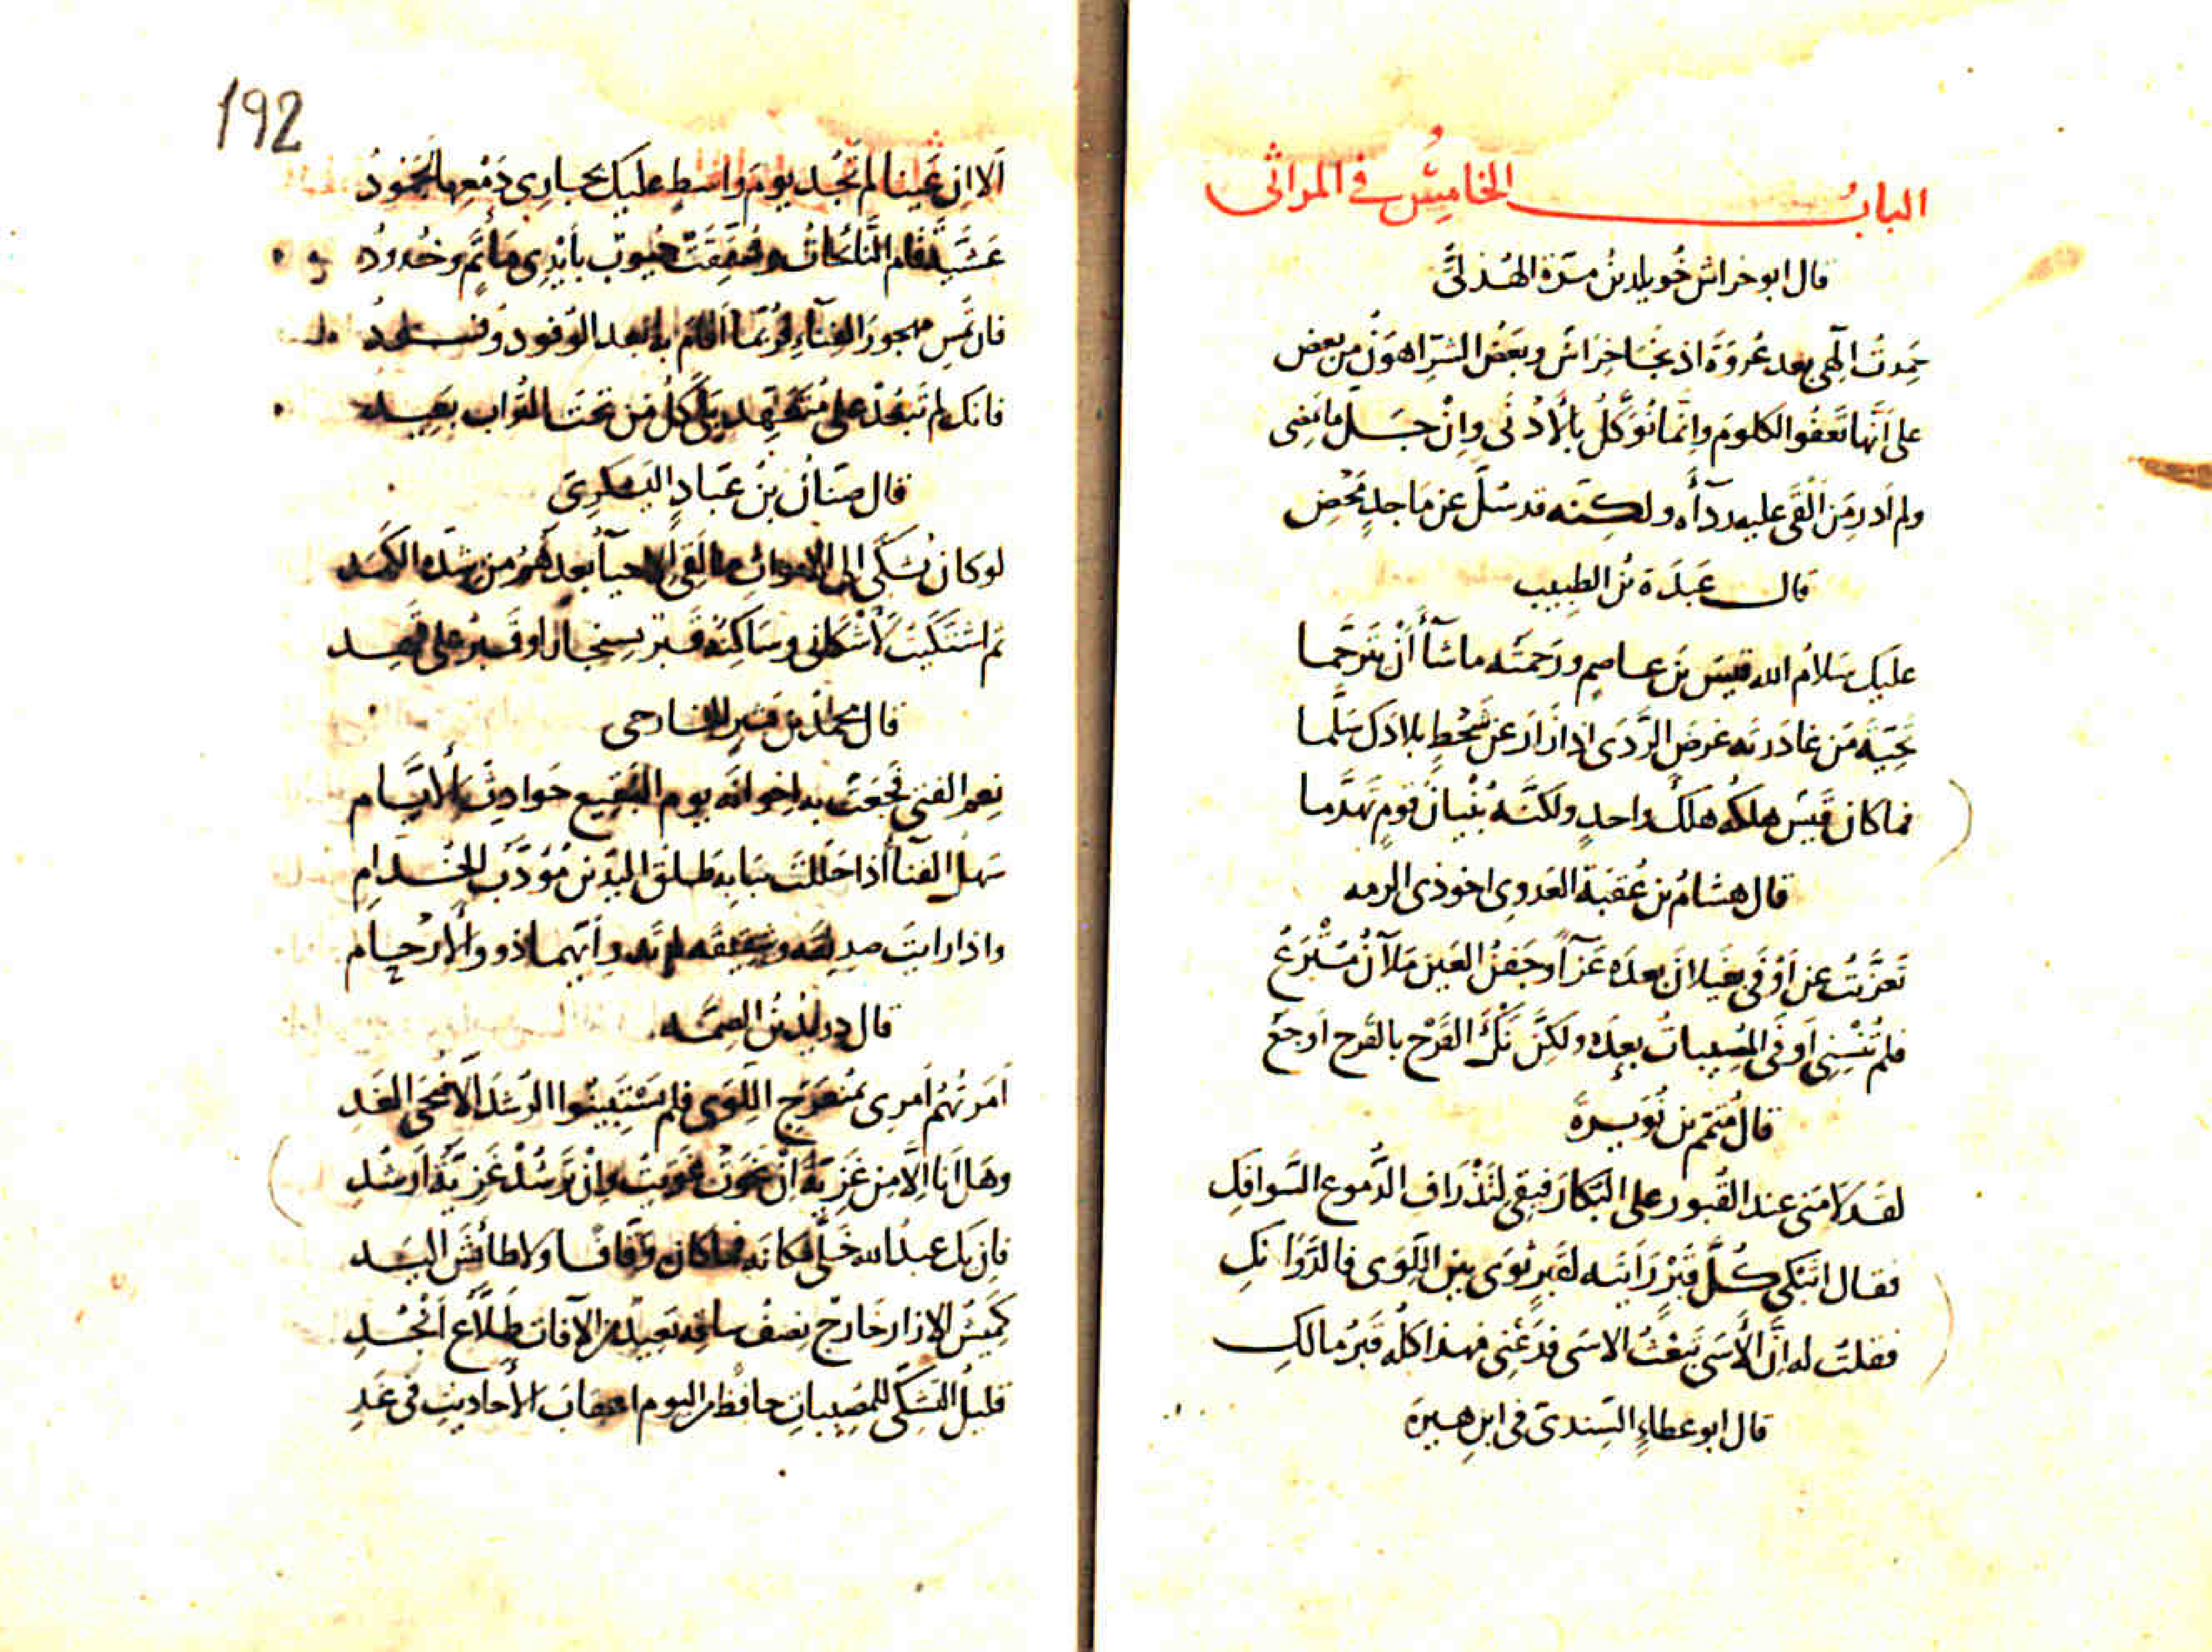 الباب الخامس في المراثي
قال ابو خراش خُويلد بنُ مرّة الهُذليّ
حَمِدتُ الٓهي بعد عُروَةَ اذ نجَا خِراشٌ وبَعضُ الشرِّ اهوَنُ من بعض
على اَنَّها تَعفُو الكلومُ وانَّما نُوَكَّلُ بالأدْنَى وانْ جَلَّ ما يَمضِى
ولم اَدرِ مَن اَلْقَى عليه ردآءه ولكنّه قد سُلَّ عن مَاجدٍ مَحْضِ
قال عَبدَة بنُ الطبيب
عليك سَلامُ الله قيسَ بن عاصم ورَحمتُه ما شآءَ أنْ يَترحَّما
تحِيَّةَ مَن غادَرتَه غرضَ الرَّدَى اذا زَارَ عن شَحْطٍ بلادَك سَلَّما
فما كان قَيسٌ هلكُه هُلكَ واحدٍ ولكنَّه بُنْيانُ قومٍ تَهدَّما
قال هشامُ بن عُقبَة العَدوِى اخو ذى الرمه
تَعزَّيتُ عن اَوْفَى بغَيلانَ بعدَه عَزآءً وجَفنُ العَين مَلآنُ مُتْرَعُ
فلم تُنْسِنِى اَوفَى المُصِيباتُ بعدَه ولكِنَّ نَكْأَ القَرْحِ بالقَرحِ اَوجَعُ
قال مُتمّم بن نُوَيرةَ
لقد لامَنى عند القُبور على البُكا رَفيقِى لتَذْرافِ الدُّموع السَّوافِكِ
فقال اتَبْكِى كُلَّ قَبْرٍ رَأيتَه لقَبرٍ ثَوَى بين اللِّوَى فالدَّوَانِكِ
فقلتُ له اِنَّ الأَسَى يَبعَثُ الاسَى فدَعْنِى فهذا كلُّه قَبرُ مالكِ
قال ابو عطاءٍ السِّندىّ فى ابنِ هبيرة
192
اَلا اِن عَينا لم تَجُد يوم واسطٍ عليك بجارِى دَمْعِها لجَمُودُ
عَشيّة قام النَّائحاتُ وشُقِّقَت جُيوبٌ بأيْدِى مَاتَمٍ وخُدودُ
فان تُمسِ مهجورَ الفِنآءِ فرُبَّما اَقامَ به بعد الوُفود وُفُودُ
فانك لم تَبعُدْ على مُتعَهِّدٍ بَلَى كلُّ مَن تحتَ التُّراب بَعِيدُ
قال صَنّانُ بنُ عَبّادٍ اليَشكرِىّ
لو كان يُشكَى الى الاموات ما لَقِىَ الاحيآءُ بعدهُمُ من شدّة الكمَد
ثم اشتَكَيتُ لاَشْكانِى وساكنُه قَبرٌ بسِنجارَ او قَبرٌ على قَهَدِ
قال محمّدُ بن بَشيرٍ الخارجى
نِعمَ الفتى فُجِعَتْ به اِخوانَه يومَ البَقيع حَوادِثُ الأيَّامِ
سَهلُ الفنآءِ اذا حَلَلتَ ببابِه طَلقُ اليَدَينِ مُؤدَّبُ الخُدَّامِ
واذا رايتَ صدِيقَه وشَقِيقَه لم تَدرِ اَيُّهما ذوو الأَرْحامِ
قال دريدُ بنُ الصِّمَّه
اَمَرتُهُم اَمرِى بمُنْعَرَجِ اللِّوَى فلم يَسْتَبِينُوا الرُشدَ اِلّا ضُحَى الغَدِ
وهَل اَنا اِلّا مِن غَزِيَّةَ اِنْ غَوَتْ غَوَيتُ وانْ تَرشُدْ غَزِيَّةُ اَرشُدِ
فاِن يَك عبدُالله خَلَّى مكانَه فما كان وَقّافًا ولا طائشَ اليَدِ
كَمِيشُ الازار خَارجٌ نصفُ ساقِه بَعِيدٌ من الآفات طَلّاعُ اَنْجُدِ
قليلُ التَشكِّى للمُصِيباتِ حافظٌ من اليوم اعقابَ الأحاديثِ فى غَدِ